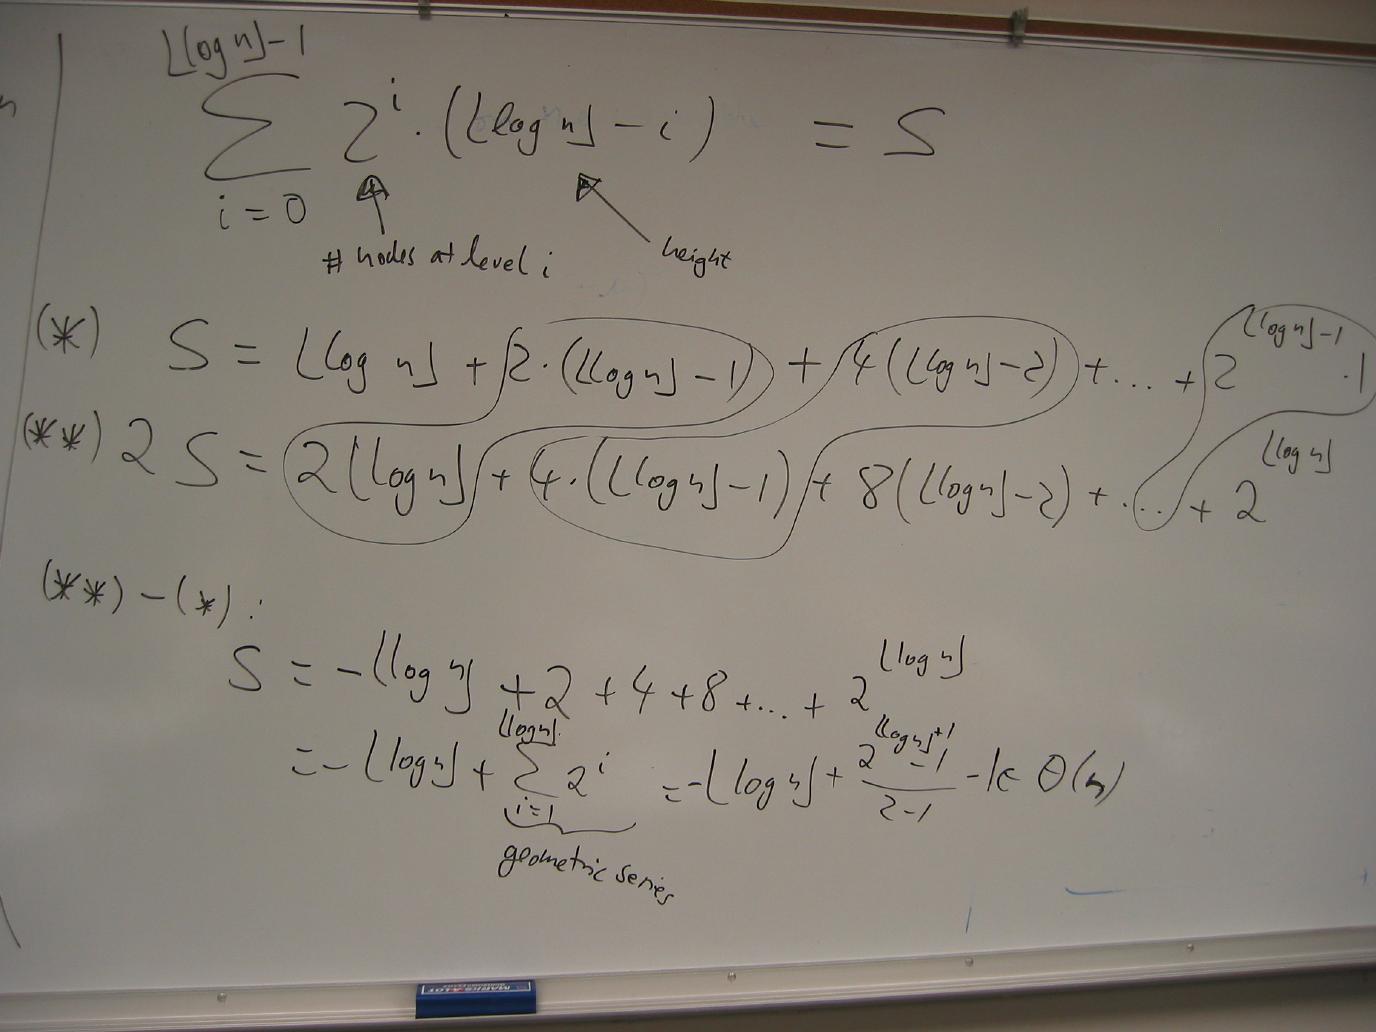 ⌊log n⌋-1
∑ 2^i · (⌊log n⌋ - i) = S
i = 0
# nodes at level i
height
(*) S = ⌊log n⌋ + 2·(⌊log n⌋-1) + 4(⌊log n⌋-2) + ... + 2^(⌊log n⌋-1) ·1
(**) 2S = 2⌊log n⌋ + 4·(⌊log n⌋-1) + 8(⌊log n⌋-2) + ... + 2^⌊log n⌋
(**) - (*) :
S = -⌊log n⌋ + 2 + 4 + 8 + ... + 2^⌊log n⌋
= -⌊log n⌋ + ∑_{i=1}^{⌊log n⌋} 2^i = -⌊log n⌋ + (2^(⌊log n⌋+1) - 1)/(2-1) - 1 ∈ Θ(n)
geometric series